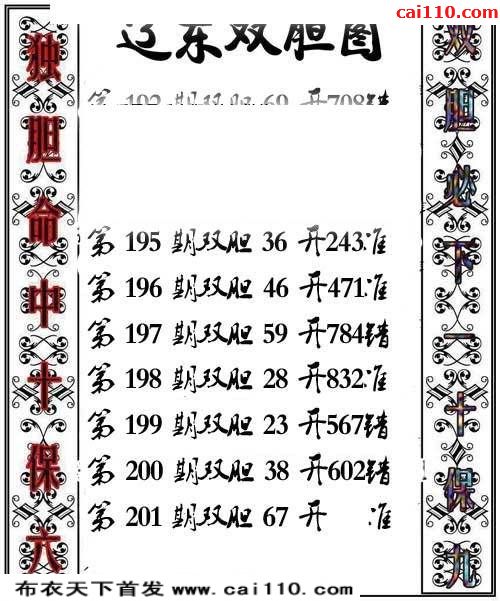 cai110.com
辽东双胆图
独胆命中十保六
双胆必下一十保九
第 192 期双胆 69 开708错
第 195 期双胆 36 开243准
第 196 期双胆 46 开471准
第 197 期双胆 59 开784错
第 198 期双胆 28 开832准
第 199 期双胆 23 开567错
第 200 期双胆 38 开602错
第 201 期双胆 67 开 准
布衣天下首发 www.cai110.com